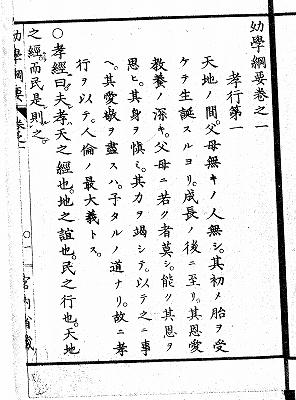 幼學綱要卷之一
孝行第一
天地ノ間。父母無キノ人無シ。其初メ胎ヲ受
ケテ生誕スルヨリ。成長ノ後ニ至リ。其恩愛
教養ノ深キ。父母ニ若ク者莫シ。能ク其恩ヲ
思ヒ。其身ヲ愼ミ。其力ヲ竭シテ。以テ之ニ事
ヘ。其愛敬ヲ盡スハ。子タルノ道ナリ。故ニ孝
行ヲ以テ。人倫ノ最大義トス。
○孝經曰。夫孝。天之經也。地之誼也。民之行也。天地
之經。而民是則之。
幼學綱要 卷之一 〇一 宮内省藏